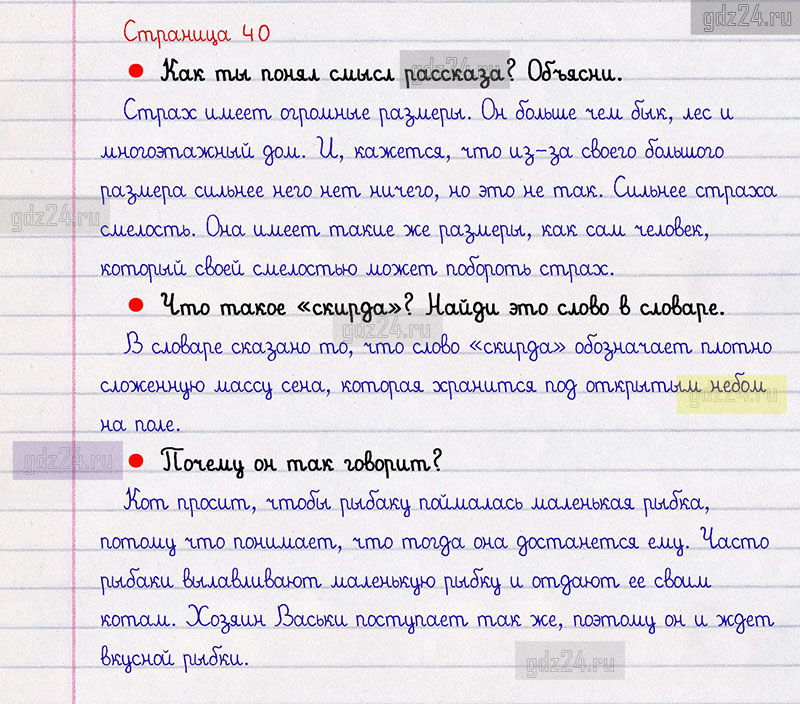 gdz24.ru
Страница 40
• Как ты понял смысл рассказа? Объясни.
gdz24.ru
Страх имеет огромные размеры. Он больше чем бык, лес и
многоэтажный дом. И, кажется, что из-за своего большого
размера сильнее него нет ничего, но это не так. Сильнее страха
gdz24.ru
смелость. Она имеет такие же размеры, как сам человек,
который своей смелостью может побороть страх.
• Что такое «скирда»? Найди это слово в словаре.
gdz24.ru
В словаре сказано то, что слово «скирда» обозначает плотно
сложенную массу сена, которая хранится под открытым небом
gdz24.ru
на поле.
gdz24.ru
• Почему он так говорит?
Кот просит, чтобы рыбаку поймалась маленькая рыбка,
потому что понимает, что тогда она достанется ему. Часто
рыбаки вылавливают маленькую рыбку и отдают ее своим
котам. Хозяин Васьки поступает так же, поэтому он и ждет
вкусной рыбки.
gdz24.ru